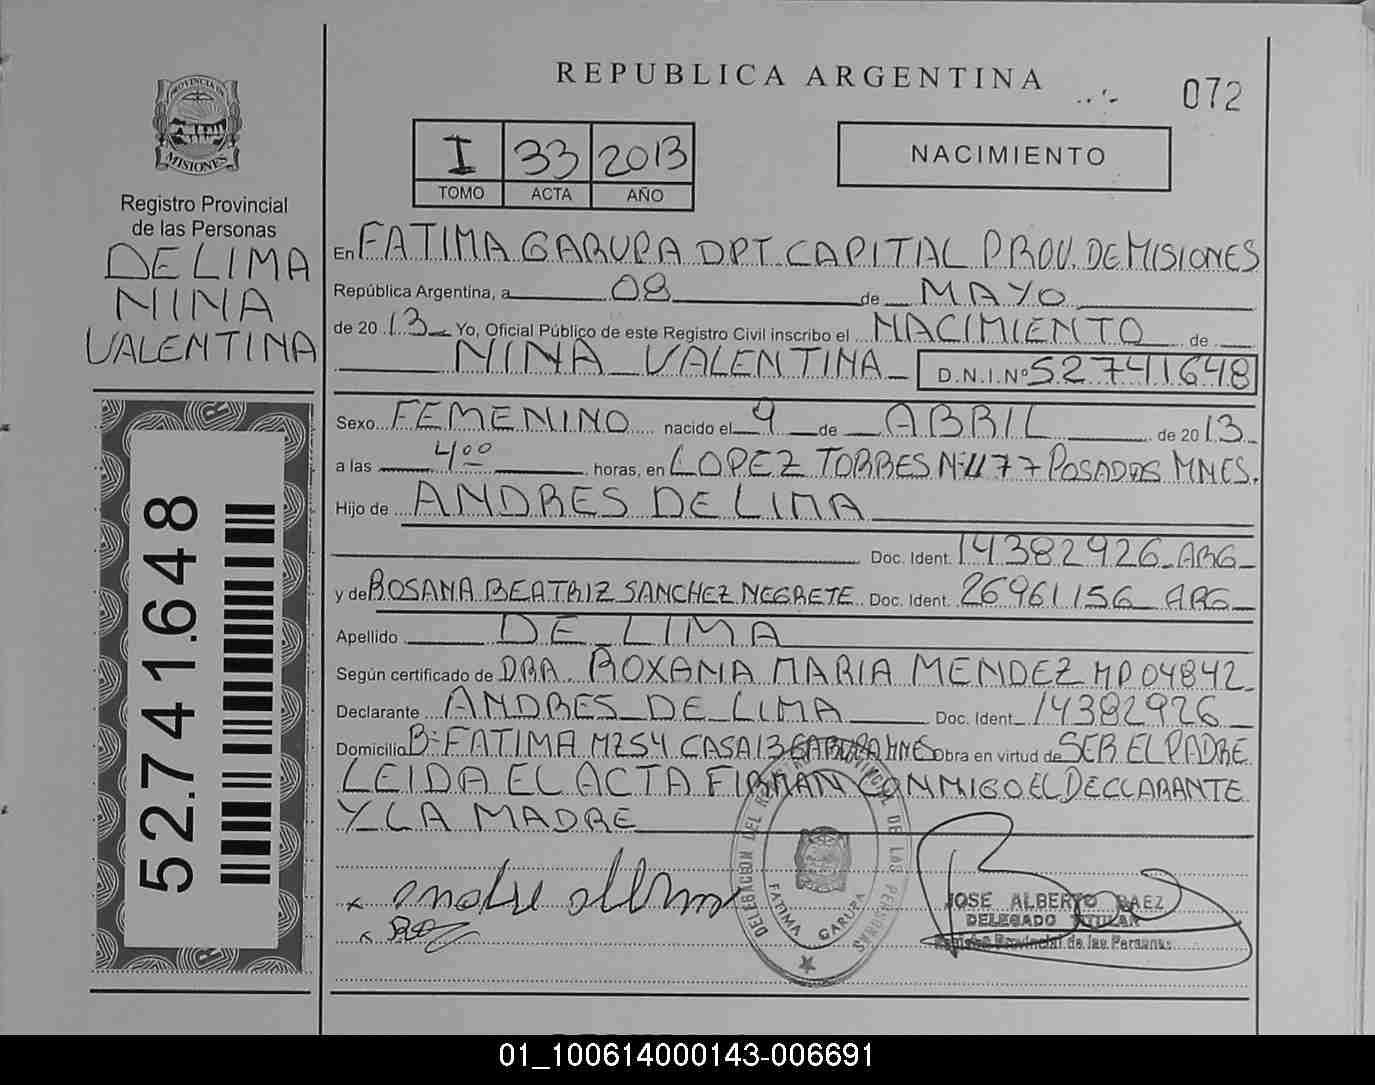 REPUBLICA ARGENTINA
072
PROVINCIA DE
MISIONES
Registro Provincial
de las Personas
DE LIMA
NINA
VALENTINA
52.741.648
I 33 2013
TOMO ACTA AÑO
NACIMIENTO
En FATIMA GARUPA DPT. CAPITAL PROV. DE MISIONES
República Argentina, a 08 de MAYO
de 2013 Yo, Oficial Público de este Registro Civil inscribo el NACIMIENTO de
NINA VALENTINA D.N.I.Nº 52741648
Sexo FEMENINO nacido el 9 de ABRIL de 2013
a las 4,00 horas, en LOPEZ TORRES Nº 1177 POSADAS MNES.
Hijo de ANDRES DE LIMA
Doc. Ident. 14382926 ARG
y de ROSANA BEATRIZ SANCHEZ NEGRETE Doc. Ident. 26961156 ARG
Apellido DE LIMA
Según certificado de DRA. ROXANA MARIA MENDEZ MP 04842
Declarante ANDRES DE LIMA Doc. Ident. 14382926
Domicilio Bº FATIMA MZ 54 CASA 13 GARUPA MNES Obra en virtud de SER EL PADRE
LEIDA EL ACTA FIRMAN CONMIGO EL DECLARANTE
Y LA MADRE
DELEGACION DEL REGISTRO PROVINCIAL DE LAS PERSONAS
FATIMA GARUPA
JOSE ALBERTO BAEZ
DELEGADO TITULAR
Registro Provincial de las Personas
01_100614000143-006691